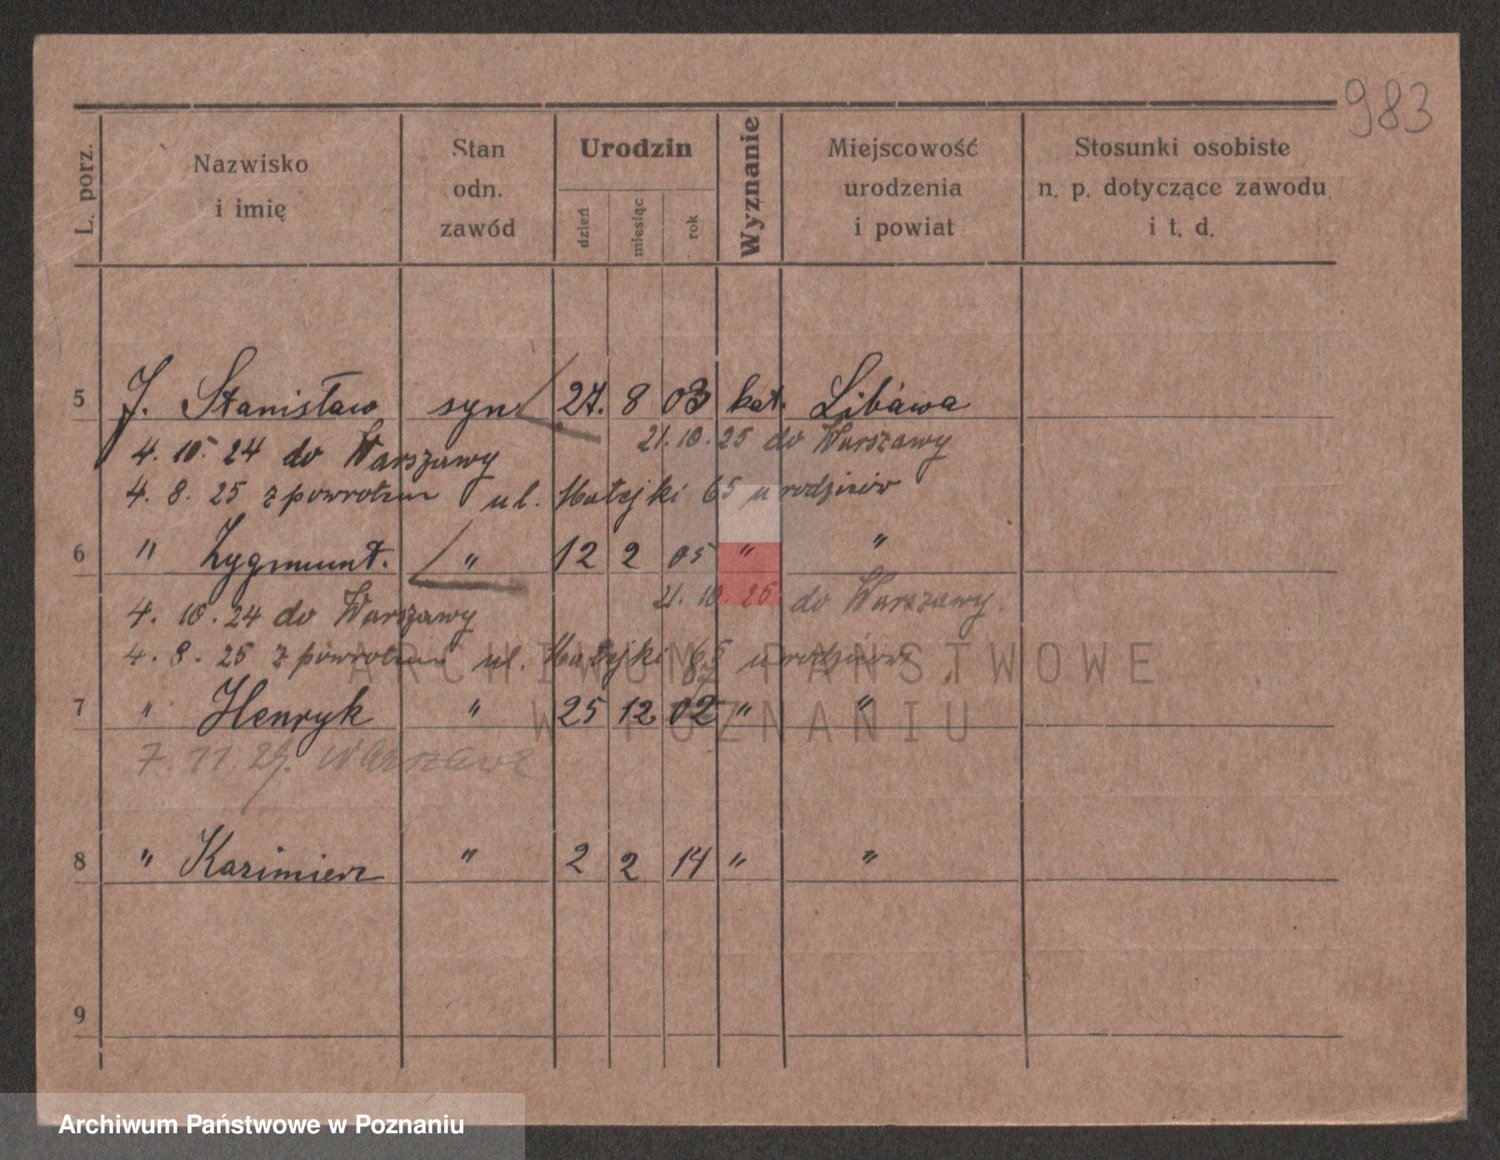 983
L. porz.
Nazwisko i imię
Stan odn. zawód
Urodzin
dzień miesiąc rok
Wyznanie
Miejscowość urodzenia i powiat
Stosunki osobiste n. p. dotyczące zawodu i t. d.
5 J. Stanisław syn 27. 8 03 kat. Libawa
4. 10. 24 do Warszawy 21. 10. 25 do Warszawy
4. 8. 25 z powrotem ul. Matejki 65 u rodziców
6 " Zygmunt. " 12 2 05 " "
4. 10. 24 do Warszawy 21. 10. 25 do Warszawy
4. 8. 25 z powrotem ul. Matejki 65 u rodziców
7 " Henryk " 25 12 02 " "
7. 11. 29. Warszawa
8 " Kazimierz " 2 2 14 " "
9
ARCHIWUM PAŃSTWOWE
W POZNANIU
Archiwum Państwowe w Poznaniu